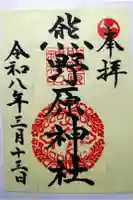 奉拝
熊野原神社
令和八年三月十三日